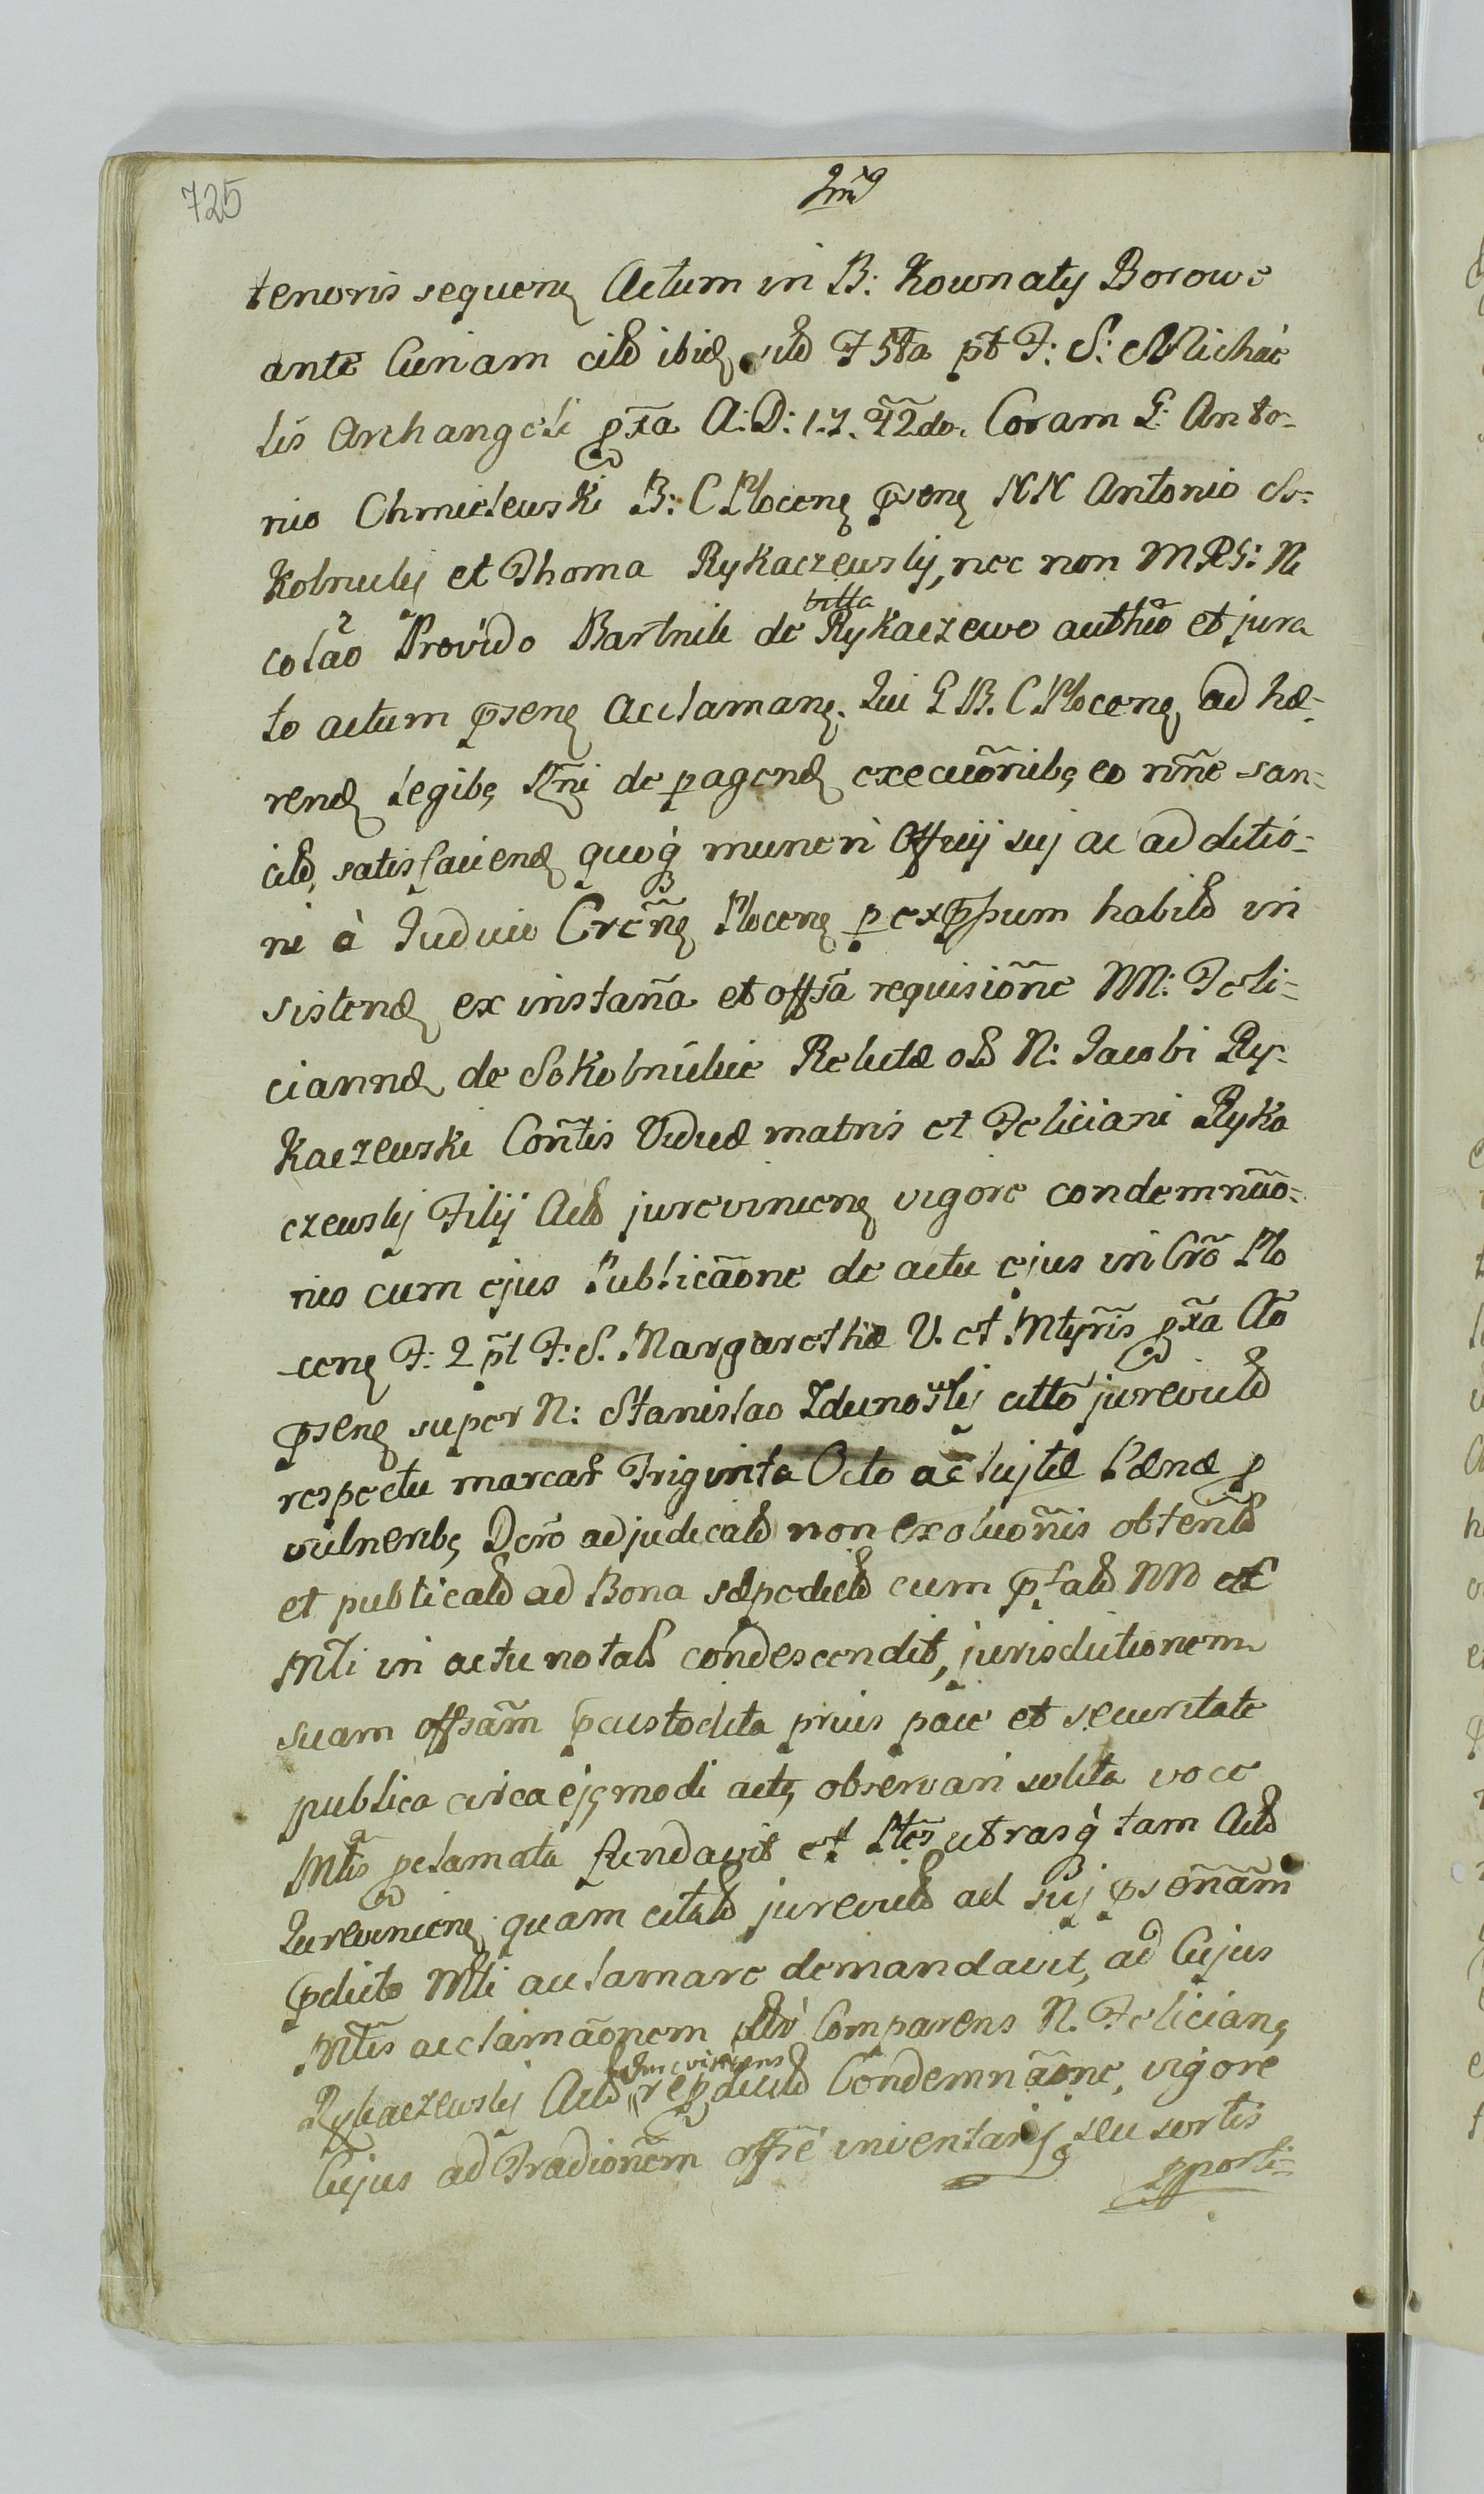 725
tenoris sequenꝫ Actum in B: Kownaty Borowe
ante Curiam cild ibidꝫ sub F 5ta pt F: S: Michae
lis Archangeli pxa A: D: 1.7.42do. Coram G: Anto-
nio Chmielewski B: C Plocenꝫ psenꝫ NN Antonio So-
kolnicky et Thoma Rykaczewsky, nec non MRG: Ni
colao Provido Bartnik de villa Rykaczewo authco et jura
to actum psenꝫ acclamanꝫ. Qui G B. C Plocenꝫ ad hæ-
rendꝫ Legibꝫ Rñi de pagendꝫ execuõnibꝫ eo nñe san-
cild, satisfaciendꝫ quoq̀ muneri Officij suj ac ad ditio-
ni à Judicio Crẽnꝫ Plocenꝫ p expssum habild in
sistendꝫ ex instaña et offsã requisiõne NN: Feli-
ciannæ de Sokolnickie Relictæ od N: Jacobi Ry-
kaczewski Coñtis Viduæ matris et Feliciani Ryka
czewsky Filij Actd jurevincenꝫ vigore condemnão-
nis cum ejus Publicãone de actu ejus in Crõ Plo
cenꝫ F: 2 pt F: S. Margarethæ V. et Mtyris pxa Aõ
psenꝫ super N: Stanislao Zdunowsky citto jurevictd
respectu marcar Triginta Octo ac lujtæ Pænæ p
vulneribꝫ Dcro adjudicatd non exoluõnis obtentd
et publicatd ad Bona sæpedictd cum pfatd NN et
Mli in actu notatd condescendit, jurisdictionem
suam offsãm pcustodita prius pace et securitate
publica circa ejꝫmodi actꝫ observari solita voce
Mlis pclamata fundavit et Ptes utrasq̀ tam Actd
Jurevincenꝫ quam citatd jurevictd ad suj psẽnãm
pdicto Mli acclamare demandavit, ad Cujus
Mlis acclamãonem Comparens N. Felicianꝫ
Rykaczewsky Actd Condemnãone, vigore
Cujus ad Tradiõnem offsẽ inventarij seu sortis
pporti-